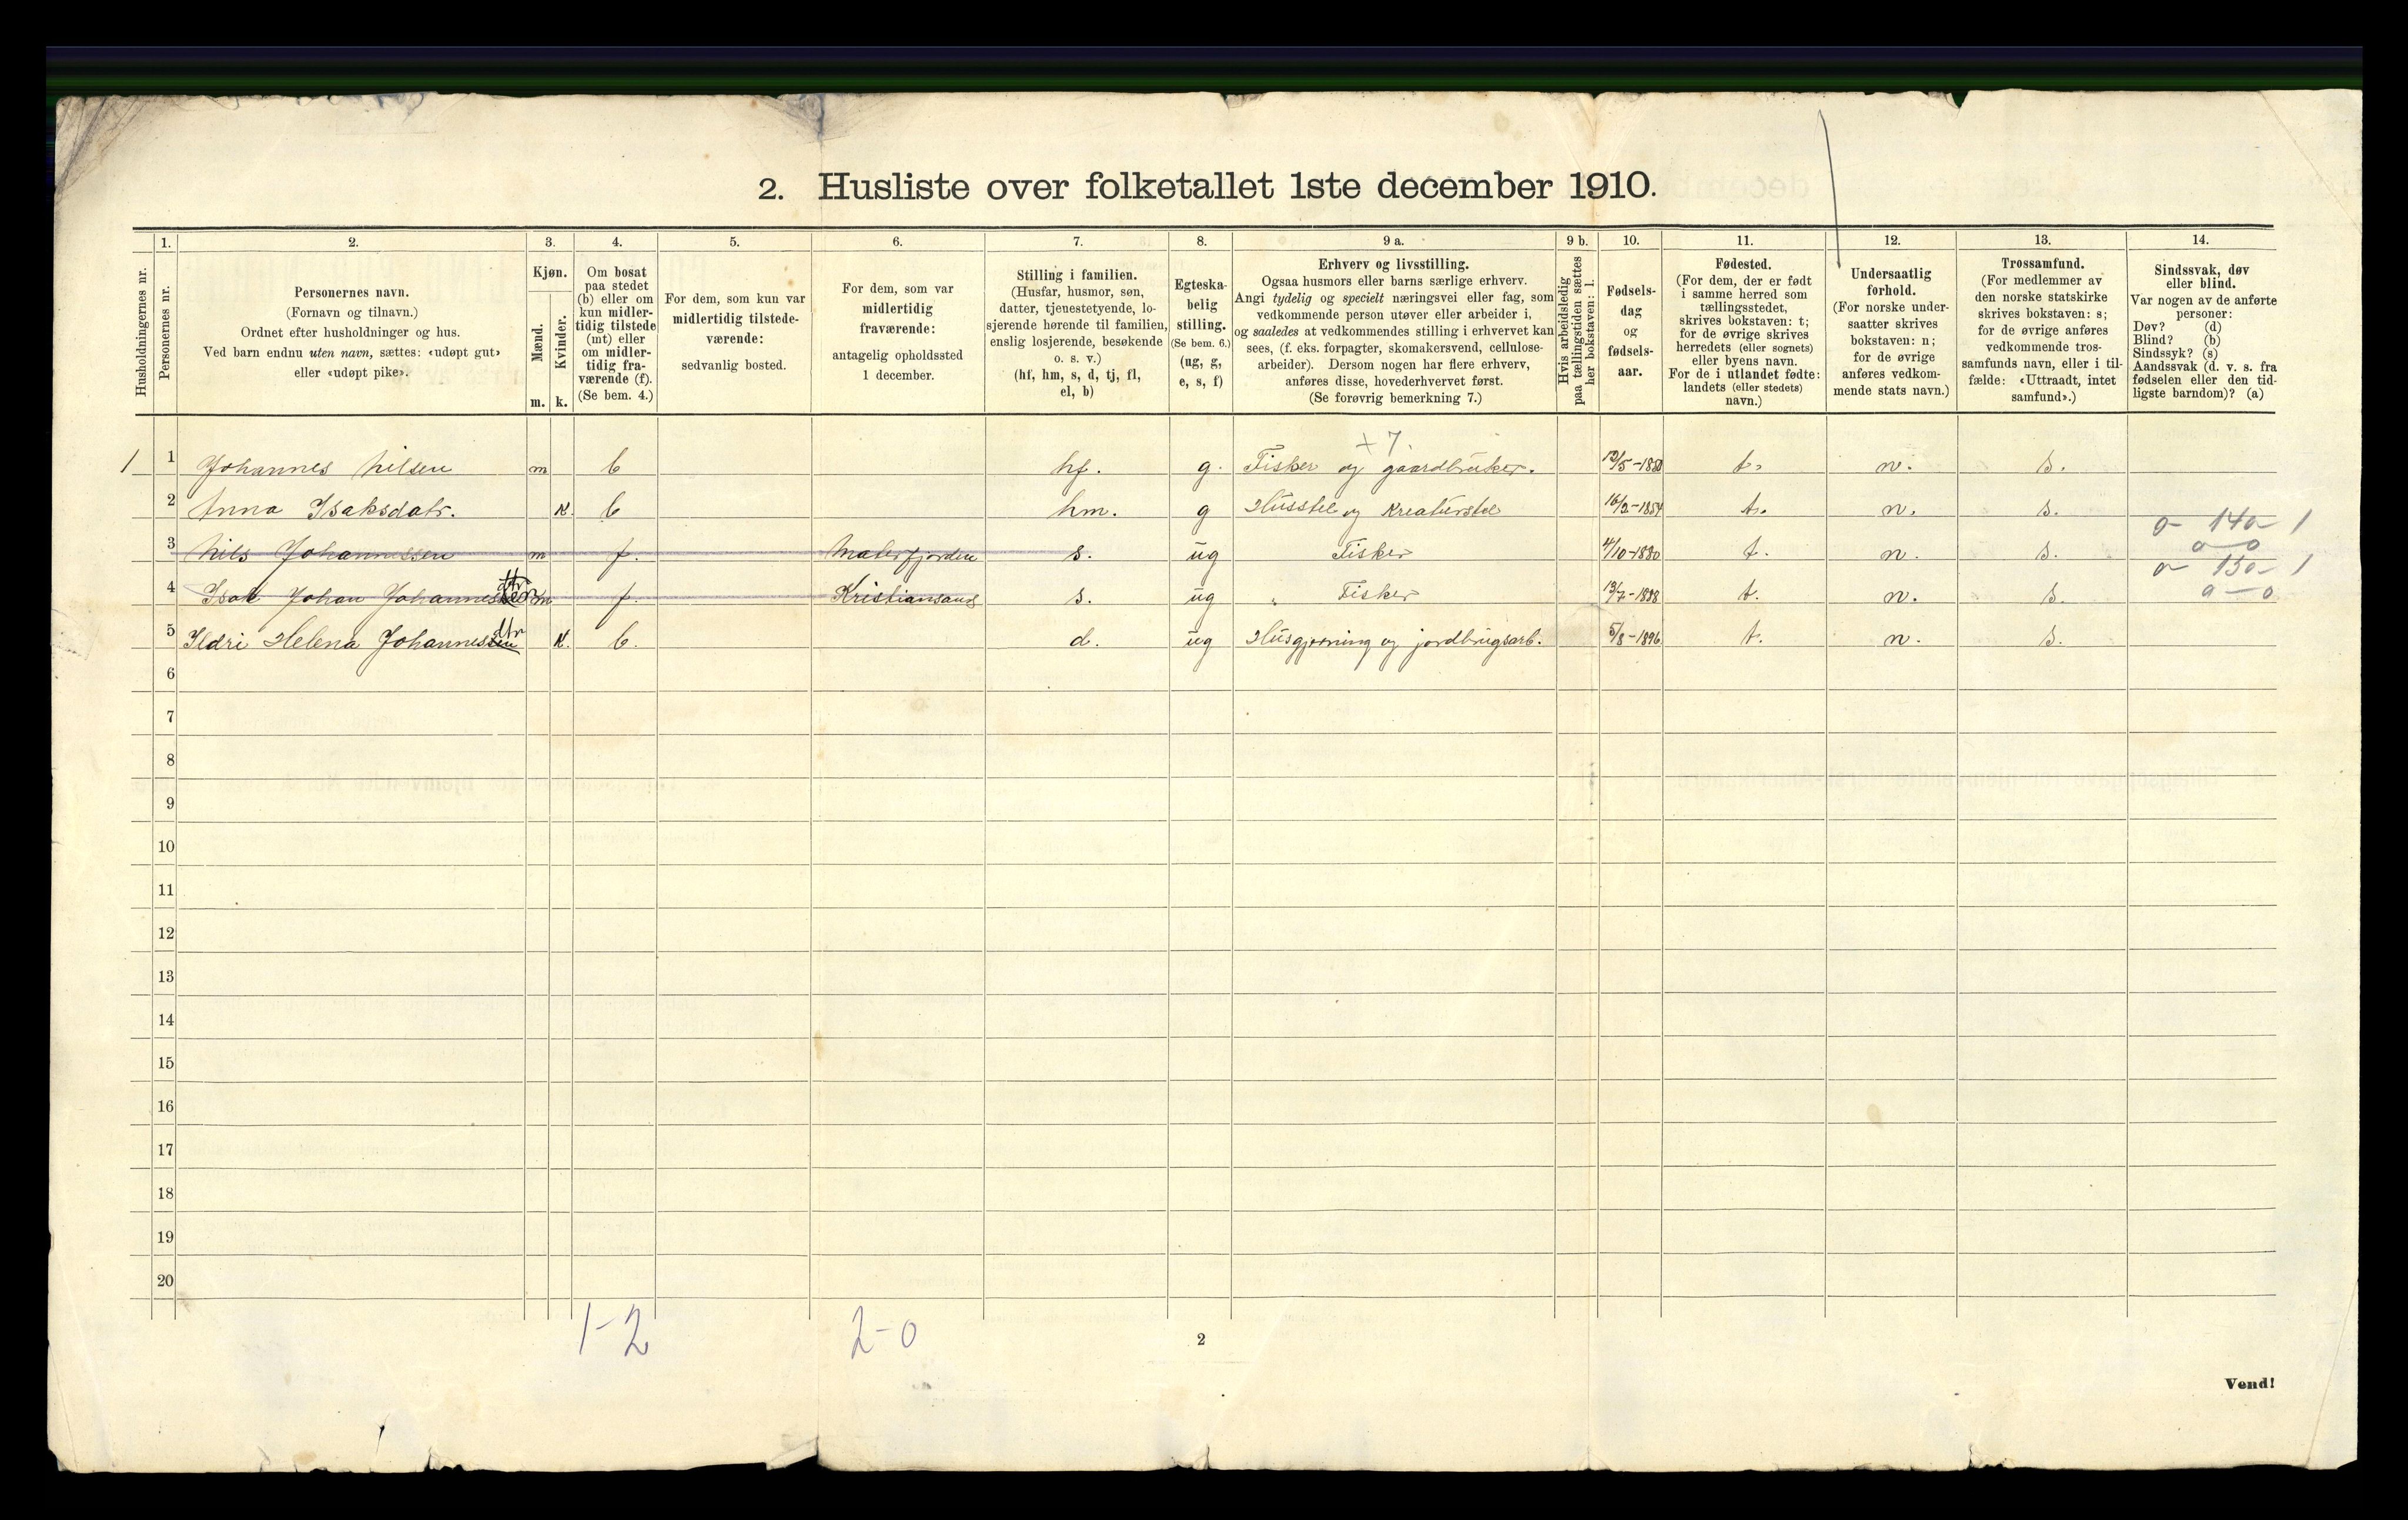 2. Husliste over folketallet 1ste december 1910.
1. 2. 3. 4. 5. 6. 7. 8. 9 a. 9 b. 10. 11. 12. 13. 14.
Husholdningernes nr.
Personernes nr.
Personernes navn.
(Fornavn og tilnavn.)
Ordnet efter husholdninger og hus.
Ved barn endnu uten navn, sættes: «udøpt gut»
eller «udøpt pike».
Kjøn.
Mænd.
Kvinder.
m. k.
Om bosat
paa stedet
(b) eller om
kun midler-
tidig tilstede
(mt) eller
om midler-
tidig fra-
værende (f).
(Se bem. 4.)
For dem, som kun var
midlertidig tilstede-
værende:
sedvanlig bosted.
For dem, som var
midlertidig
fraværende:
antagelig opholdssted
1 december.
Stilling i familien.
(Husfar, husmor, søn,
datter, tjenestetyende, lo-
sjerende hørende til familien,
enslig losjerende, besøkende
o. s. v.)
(hf, hm, s, d, tj, fl,
el, b)
Egteska-
belig
stilling.
(Se bem. 6.)
(ug, g,
e, s, f)
Erhverv og livsstilling.
Ogsaa husmors eller barns særlige erhverv.
Angi tydelig og specielt næringsvei eller fag, som
vedkommende person utøver eller arbeider i,
og saaledes at vedkommendes stilling i erhvervet kan
sees, (f. eks. forpagter, skomakersvend, cellulose-
arbeider). Dersom nogen har flere erhverv,
anføres disse, hovederhvervet først.
(Se forøvrig bemerkning 7.)
Hvis arbeidsledig
paa tællingstiden sættes
her bokstaven: l.
Fødsels-
dag
og
fødsels-
aar.
Fødested.
(For dem, der er født
i samme herred som
tællingsstedet,
skrives bokstaven: t;
for de øvrige skrives
herredets (eller sognets)
eller byens navn.
For de i utlandet fødte:
landets (eller stedets)
navn.)
Undersaatlig
forhold.
(For norske under-
saatter skrives
bokstaven: n;
for de øvrige
anføres vedkom-
mende stats navn.)
Trossamfund.
(For medlemmer av
den norske statskirke
skrives bokstaven: s;
for de øvrige anføres
vedkommende tros-
samfunds navn, eller i til-
fælde: «Uttraadt, intet
samfund».)
Sindssvak, døv
eller blind.
Var nogen av de anførte
personer:
Døv? (d)
Blind? (b)
Sindssyk? (s)
Aandssvak (d. v. s. fra
fødselen eller den tid-
ligste barndom)? (a)
+ 7.
1 1 Johannes Nilsen m b hf. g. Fisker og gaardbruker. t. n. s.
2 Anna Isaksdatr. k. b hm. g Husstel og Kreaturstel 16/2-1854 t. n. s.
0- 140- 1
3 Nils Johannessen m f. s. ug Fisker 4/10-1880 t. n. s. 0-0
0- 130- 1
4 Isak Johan Johannessen m f. Kristiansund s. ug " Fisker 13/7-1888 t. n. s. 0-0
dtr
5 Ildri Helena Johannessen k. b. d. ug Husgjerning og jordbrugsarb. 5/8-1896 t. n. s.
6
7
8
9
10
11
12
13
14
15
16
17
18
19
20
1-2 2-0
2
Vend!